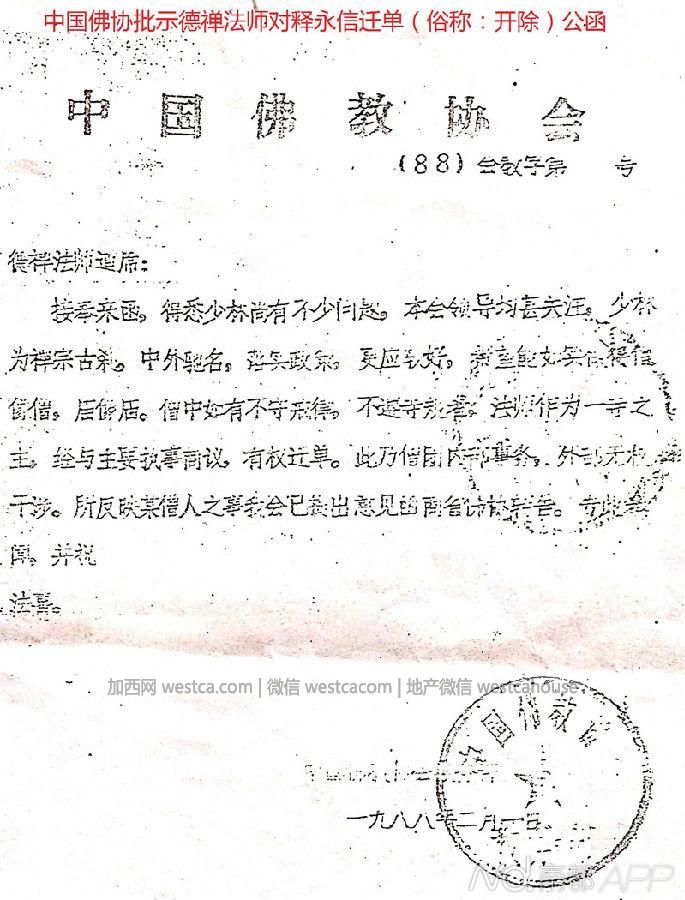 中国佛协批示德禅法师对释永信迁单（俗称：开除）公函
中国佛教协会
（88）会教字第 号
德禅法师道席：
接奉来函，得悉少林尚有不少问题，本会领导均甚关注。少林
为禅宗古刹，中外驰名，落实政策，更应较好，
僧，后修后。僧中如有不守戒律，不遵寺规者，法师作为一寺之
主，经与主要执事商议，有权迁单。此乃僧团内部事务，外部无权
干涉。所反映某僧人之事我会已提出意见函河南省
并祝
法喜。
加西网 westca.com | 微信 westcacom | 地产微信 westcahouse
中国佛教协
一九八八年二月一日
N 南都APP